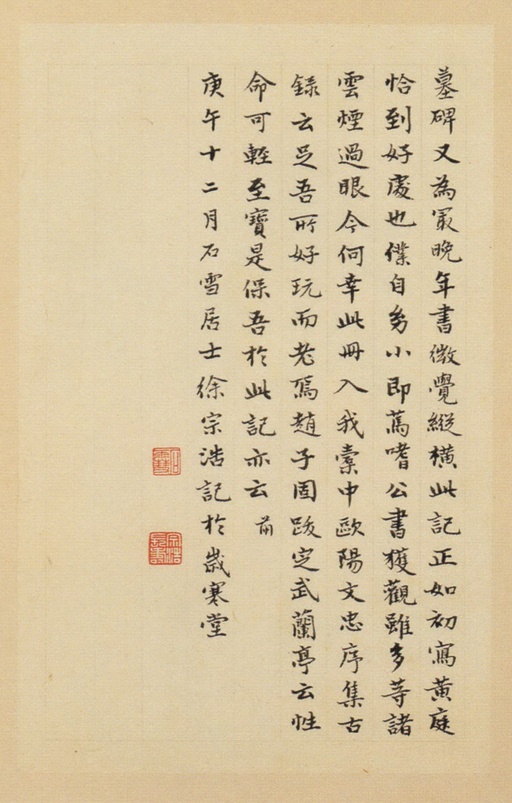 墓碑又為冣晚年書微覺縱橫此記正如初寫黃庭
恰到好處也僕自幼小即篤嗜公書獲觀雖多等諸
雲煙過眼今何幸此冊入我橐中歐陽文忠序集古
録云足吾所好玩而老焉趙子固跋定武蘭亭云性
命可輕至寶是保吾於此記亦云 前
庚午十二月石雪居士徐宗浩記於歲寒堂
石雪
宗浩長壽